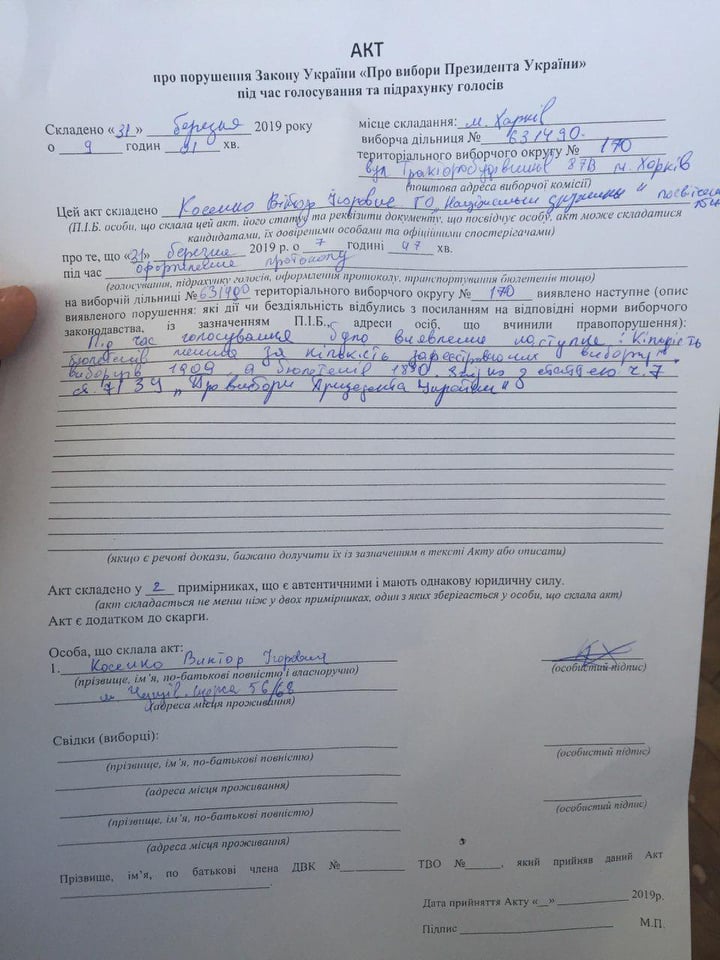 АКТ
про порушення Закону України «Про вибори Президента України»
під час голосування та підрахунку голосів
Складено «31» березня 2019 року
о 9 годин 91 хв.
місце складання: м. Харків
виборча дільниця № 631490.
територіального виборчого округу № 170
вул Тракторобудівників 87В м. Харків
(поштова адреса виборчої комісії)
Цей акт складено Косенко Ігорович ГО „Національні дружини" посвідчення
(П.І.Б. особи, що склала цей акт, його статус та реквізити документу, що посвідчує особу, акт може складатися
кандидатами, їх довіреними особами та офіційними спостерігачами)
про те, що «31» березня 2019 р. о 7 годині 47 хв.
під час оформлення протоколу
(голосування, підрахунку голосів, оформлення протоколу, транспортування бюлетенів тощо)
на виборчій дільниці № територіального виборчого округу № 170 виявлено наступне (опис
виявленого порушення: які дії чи бездіяльність відбулись з посиланням на відповідні норми виборчого
законодавства, із зазначенням П.І.Б., адреси осіб, що вчинили правопорушення):
Під час голосування було виявлене наступне: Кількість
бюлетенів менша за кількість зареєстрованих
виборців 1909, а бюлетенів 1890. з ч. 7
ст. „Про вибори Президента України"
(якщо є речові докази, бажано долучити їх із зазначенням в тексті Акту або описати)
Акт складено у 2 примірниках, що є автентичними і мають однакову юридичну силу.
(акт складається не менш ніж у двох примірниках, один з яких зберігається у особи, що склала акт)
Акт є додатком до скарги.
Особа, що склала акт:
1. Косенко Виктор Ігорович
(прізвище, ім'я, по-батькові повністю і власноручно)
(особистий підпис)
м. 56/68
(адреса місця проживання)
Свідки (виборці):
(прізвище, ім'я, по-батькові повністю)
(особистий підпис)
(адреса місця проживання)
(прізвище, ім'я, по-батькові повністю)
(особистий підпис)
(адреса місця проживання)
Прізвище, ім'я, по батькові члена ДВК № ТВО № , який прийняв даний Акт
Дата прийняття Акту «__» 2019р.
Підпис М.П.